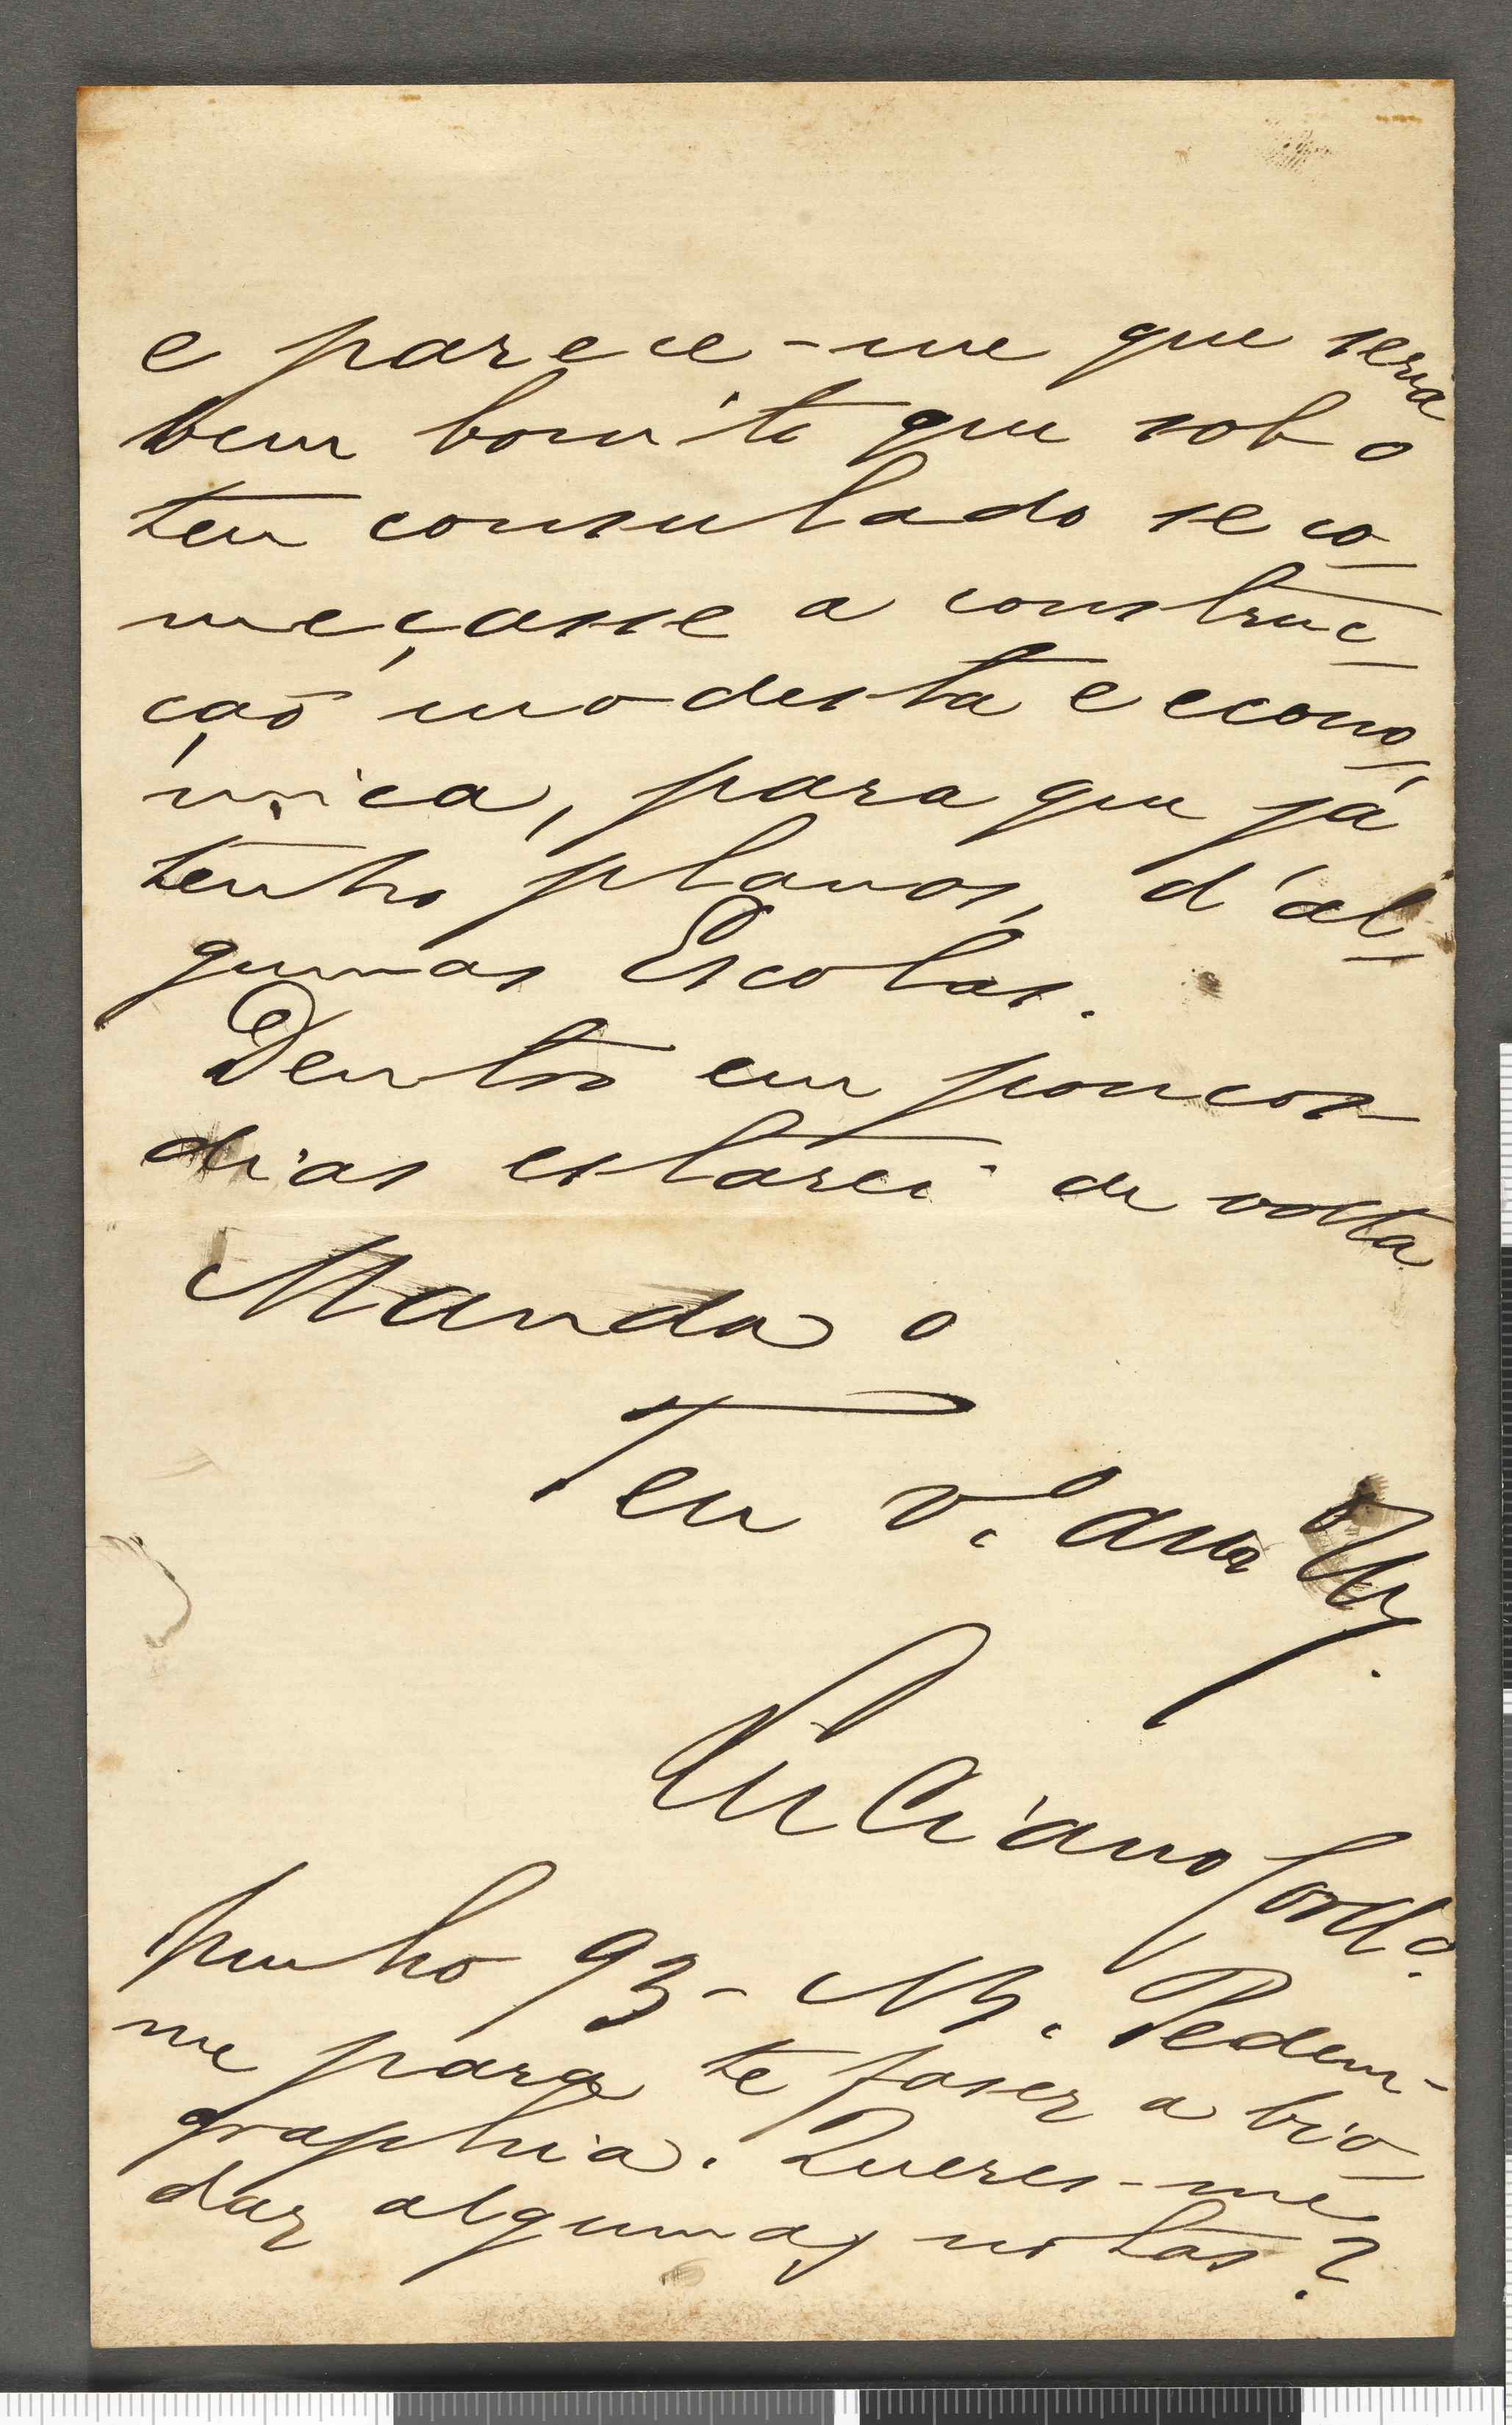 e parece-me que seria
bem bonito que sob o
teu consulado se co-
meçasse a construc-
ção modesta e econo-
mica, para que já
tenho planos, d'al-
gumas Escolas.
Dentro em poucos
dias estarei de volta
Manda o
Teu v.º amº
Luciano Cordº.
Junho 93 - NB. Pedem-
me para te faser a bio-
graphia. Queres-me
dar algumas notas?